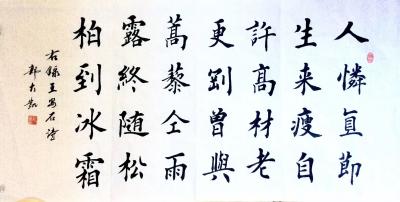 人憐直節
生来瘦自
許高材老
更剛曾與
蒿藜仝雨
露終随松
柏到冰霜
右録王安石詩
郭大